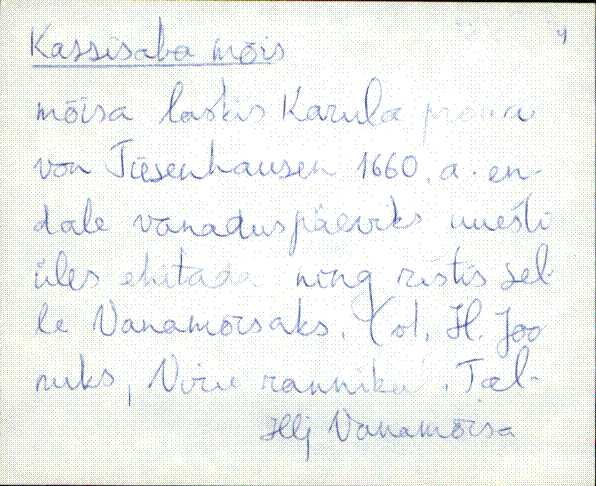 Kassisaba mõis
mõisa laskis Karula proua
von Tiesenhausen 1660. a. en-
dale vanaduspäeviks uuesti
üles ehitada ning ristis sel-
le Vanamõisaks. (vt. H. Joo
nuks, Viru rannikul. Tal-
Hlj Vanamõisa